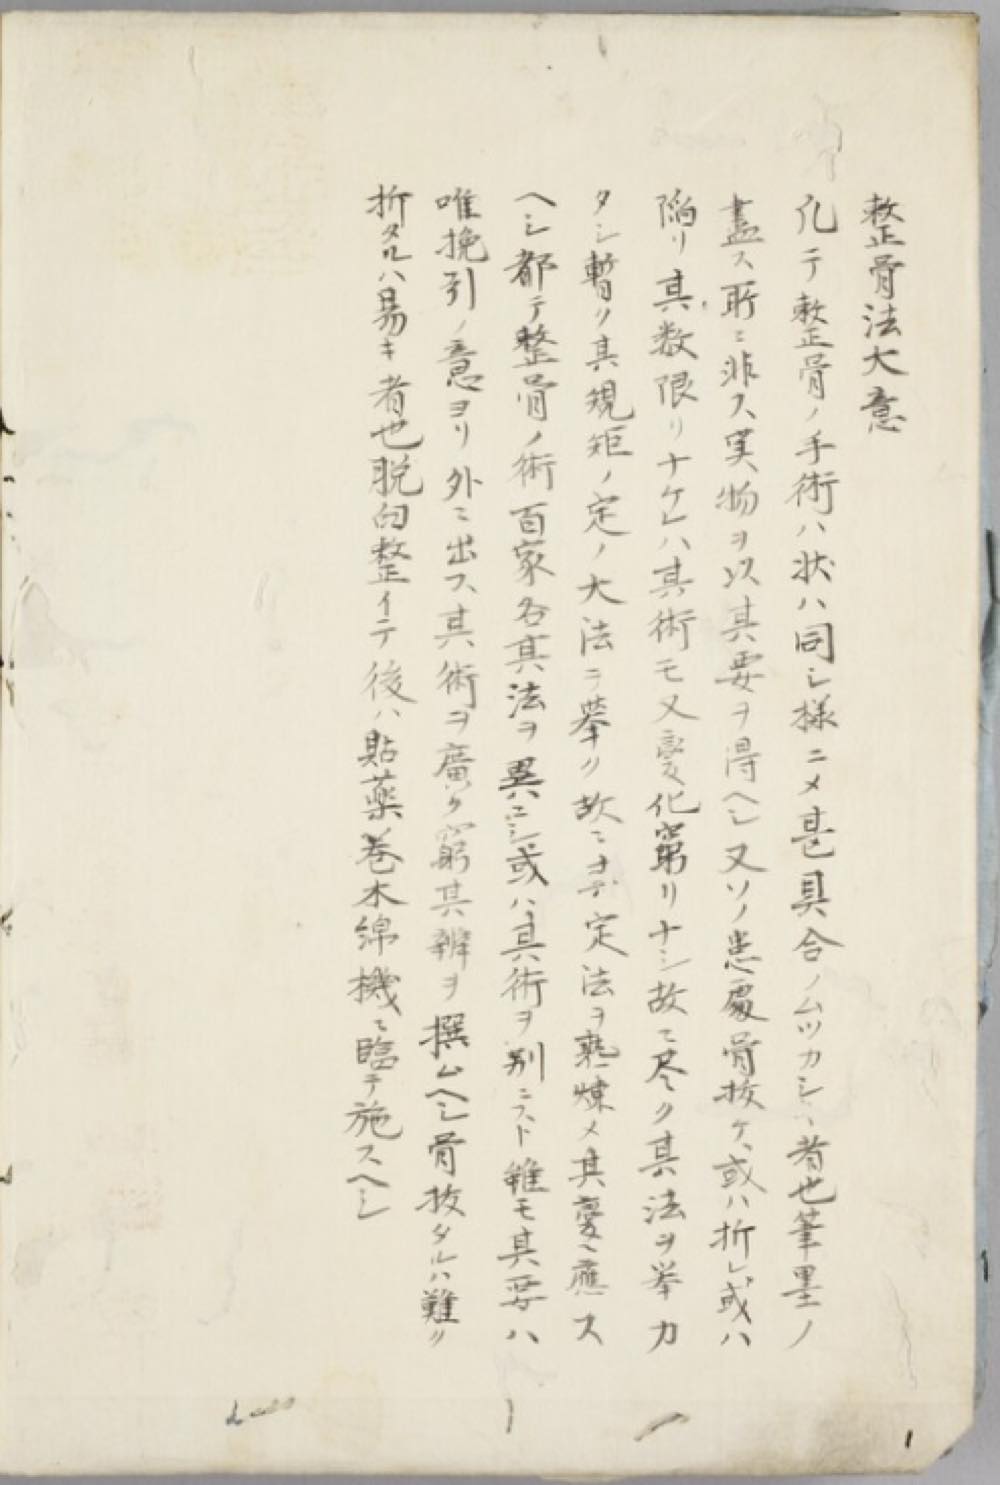 整骨法大意
凡テ整骨ノ手術ハ状ハ同シ様ニメ甚具合ノムツカシヽ者也筆墨ノ
盡ス所ニ非ス実物ヲ以其要ヲ得ヘシ又ソノ患處骨抜ケ或ハ折レ或ハ
陥リ其数限リナケレハ其術モ又変化窮リナシ故ニ尽ク其法ヲ挙カ
タシ暫ク其規矩ノ定ノ大法ヲ挙ク故ニ定法ヲ熟煉メ其変ニ應ス
ヘシ都テ整骨ノ術百家各其法ヲ異ニシ或ハ其術ヲ別ニスト雖モ其要ハ
唯挽引ノ意ヨリ外ニ出ス其術ヲ廣ク窮其辨ヲ撰ムヘシ骨抜タルハ難ク
折タルハ易キ者也脱臼整イテ後ハ貼薬巻木綿機ニ臨テ施スヘシ
1